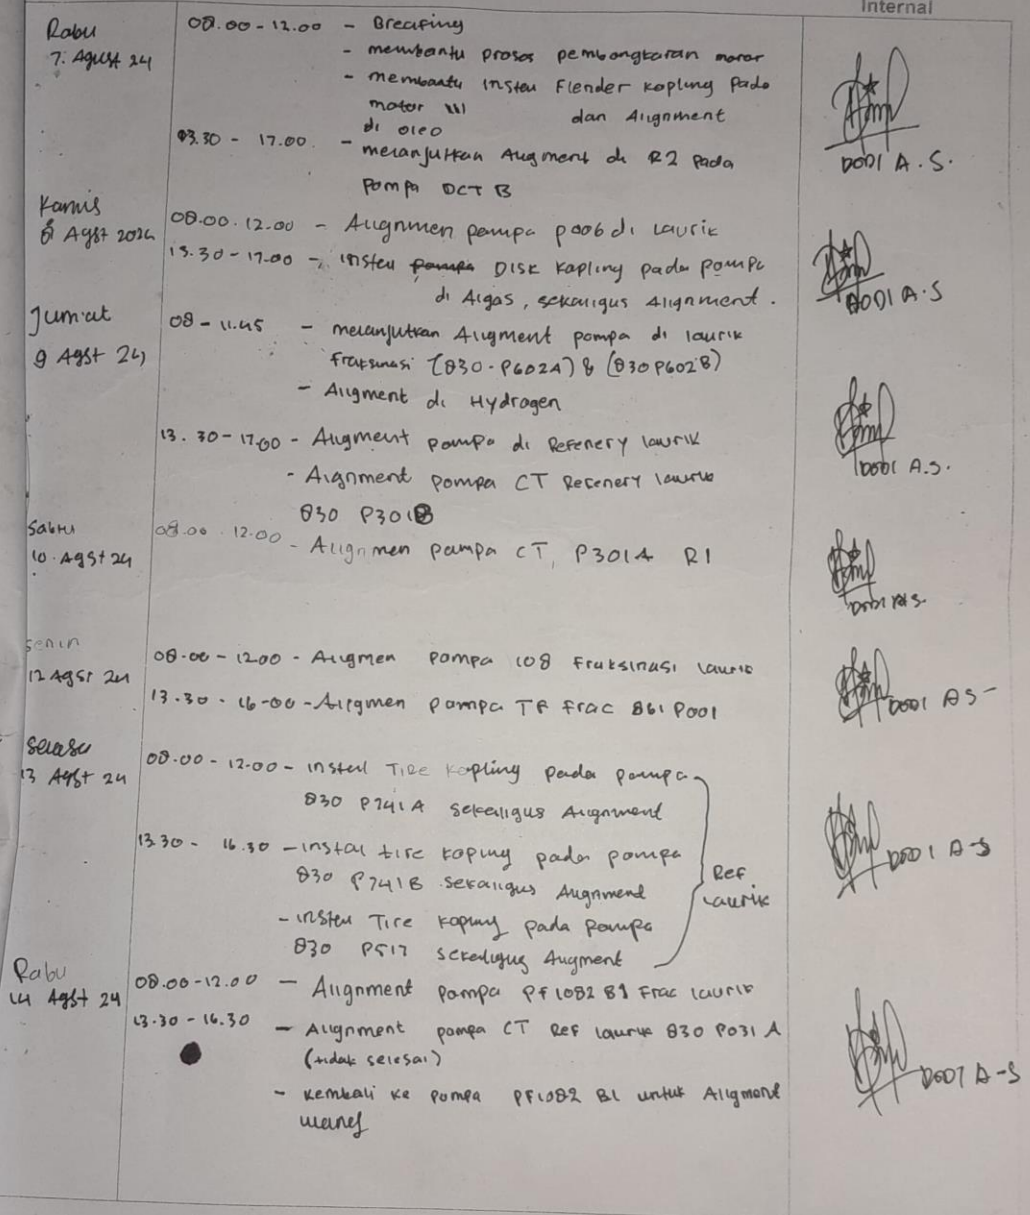 Internal
Rabu 08.00-12.00 - Breafing
7. Agust 24 - membantu proses pembongkaran motor
- membantu insteu Flender Kopling Pada
motor di oleo dan Alignment
13.30 - 17.00. - melanjutkan Augment di R2 Pada
Pompa DCT B
DODI A.S.
Kamis 08.00.12.00 - Alignmen pompa p006 di Laurik
8 Agst 2024 13.30-17.00 - insteu DISK Kopling pada pompa
di Algas, sekaligus Alignment.
DODI A.S
Jum'at 08-11.45 - melanjutkan Aligment pompa di laurik
9 Agst 24 Fraksinasi (830-P602A) & (830 P602B)
- Aligment di Hydrogen
13.30-17.00 - Aligment pompa di Refenery laurik
- Alignment pompa CT Refenery laurik
830 P301B
DODI A.S.
Sabtu 08.00.12.00 - Alignmen pampa CT, P301A R1
10. Agst 24
DODI A.S.
Senin 08.00-12.00 - Aligmen Pompa 108 Fraksinasi laurik
12 Agst 24 13.30-16-00 - Aligmen pompa TF Frac 861 P001
DODI AS-
Selasa 08.00-12.00 - insteu Tire Kopling pada pompa
13 Agst 24 830 P741A sekaligus Alignment
13.30 - 16.30 - instal tire kopling pada pompa
830 P741B sekaligus Alignment
- insteu Tire kopling pada pompa
830 P517 sekaligus Aligment
Ref
Laurik
DODI A-S
Rabu 08.00-12.00 - Alignment Pompa PF1082 B1 Frac laurik
14 Agst 24 13.30-16.30 - Alignment pompa CT Ref laurik 830 P031 A
(tidak selesai)
- Kembali ke pompa PF1082 B1 untuk Aligment
DODI A-S